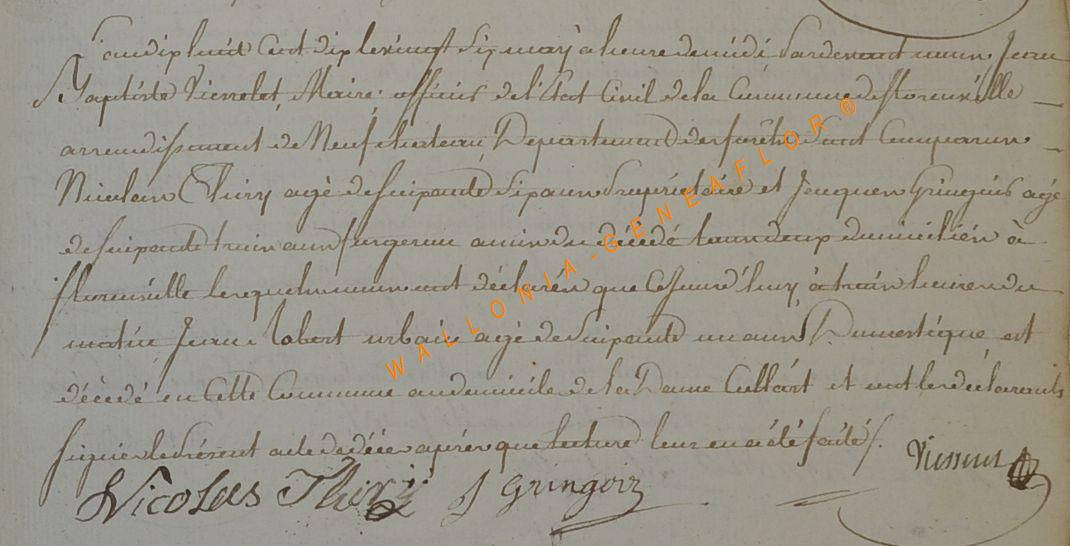 L'an dix huit cent dix le vingt six may à heure de midi Pardevant nous Jean
Baptiste Officier de l'Etat Civil de la Commune de florenville
arrondissement de Neufchateau Departement des forêts sont comparus
Nicolas Thiry agé de soixante six ans Propriétaire et Jacques Gringoir agé
de soixante trois ans amis du décédé tous deux domiciliés à
florenville lesquels nous ont déclarés que ce jourd'huy à trois heures du
matin Jean Robert urbain agé de soixante un ans Domestique est
décédé en Cette Commune au domicile de la Dame et ont les déclarants
signés le Présent acte de décès après que Lecture leur en a été faite
Nicolas Thiry J Gringoir
WALLONIA-GENEAFLOR®